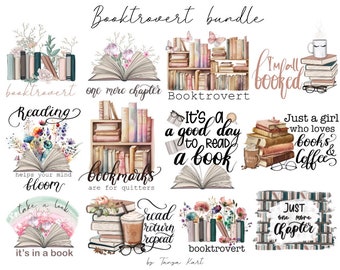 Booktrovert bundle
booktrovert
one more chapter
Booktrovert
i'm all
booked
Reading
helps your mind
bloom
bookmarks
are for quitters
It's a
a good
day to
read
a book
Just a girl
who loves
books &
coffee
take a look
it's in a book
read
return
repeat
booktrovert
JUST
one more
CHAPTER
by Tanya Kart